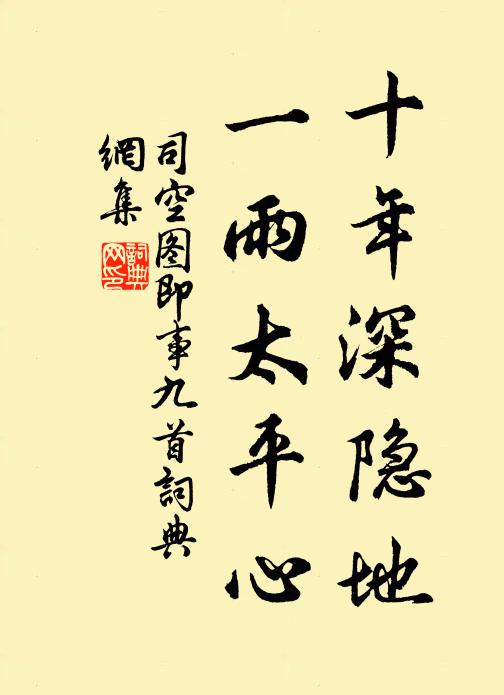 十年深隐地
一雨太平心
司空图即事九首詞典
網集
詞典
网印